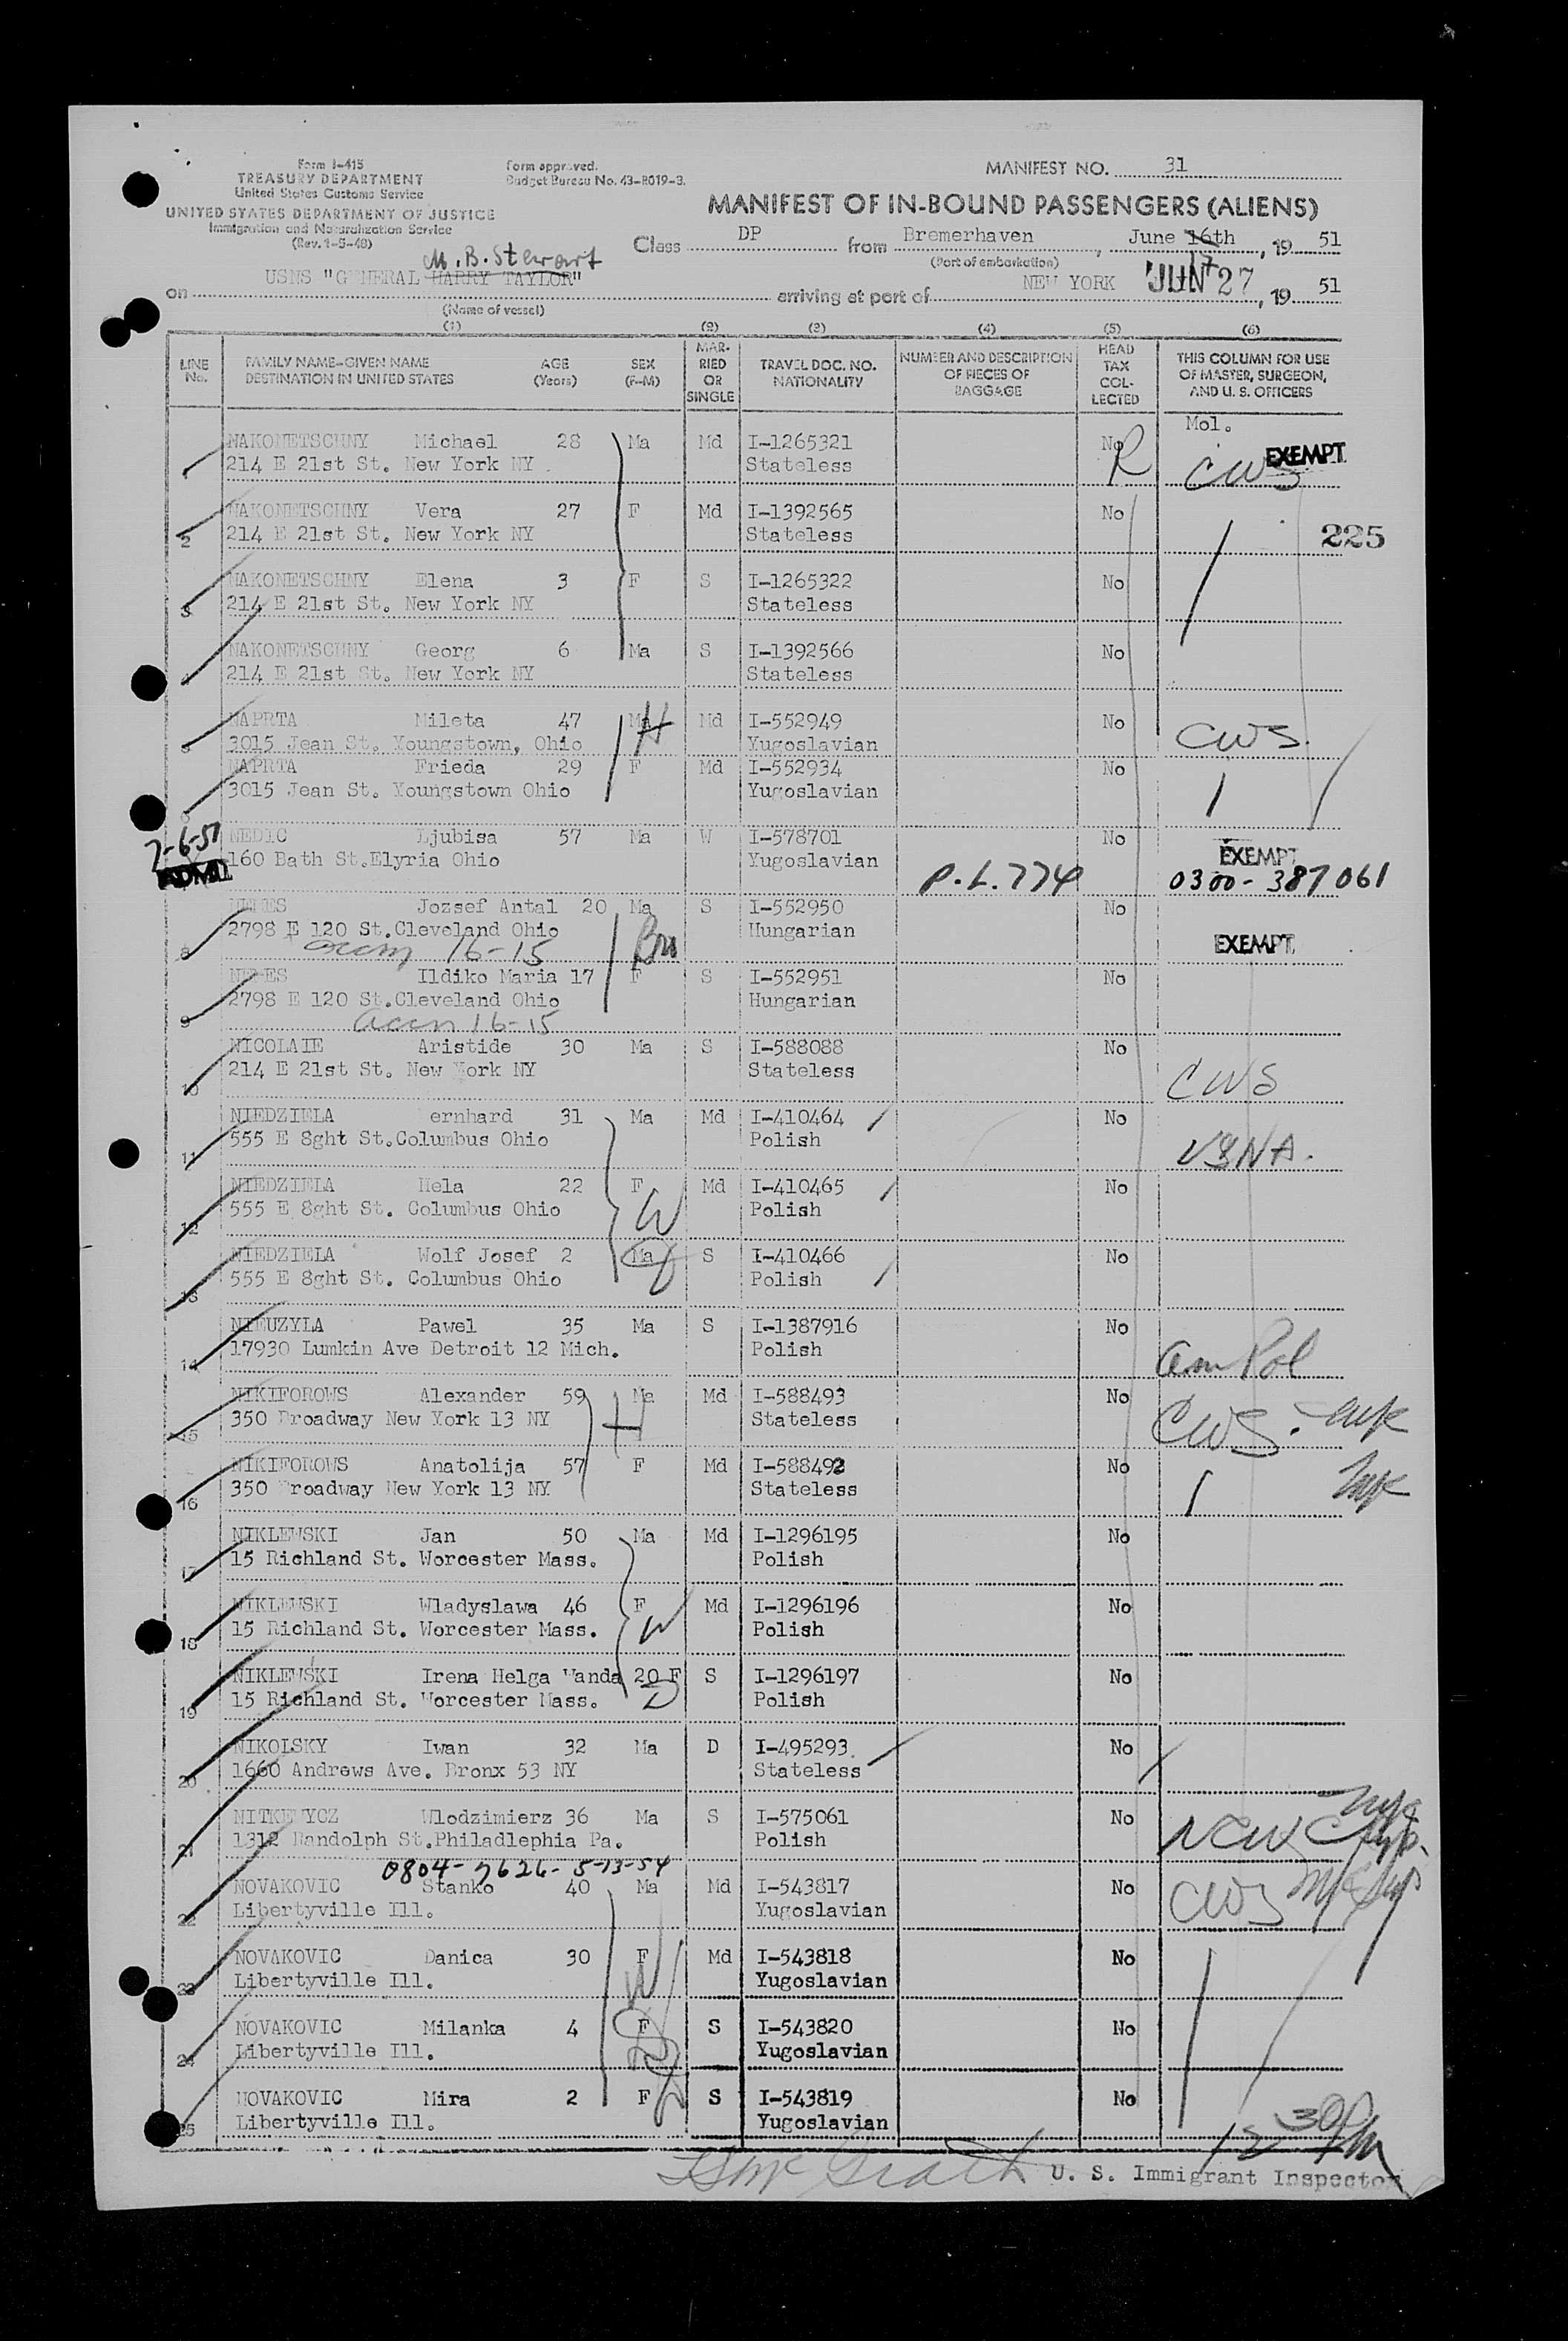 Form I-415
TREASURY DEPARTMENT
United States Customs Service
UNITED STATES DEPARTMENT OF JUSTICE
Immigration and Naturalization Service
(Rev. 1-5-48)
Form approved.
Budget Bureau No. 43-R019-3.
MANIFEST NO. 31
MANIFEST OF IN-BOUND PASSENGERS (ALIENS)
Class DP from Bremerhaven, June 16th 17, 19 51
(Port of embarkation)
M. B. Stewart
on USNS "GENERAL HARRY TAYLOR" arriving at port of NEW YORK JUN 27, 19 51
(Name of vessel)
(1) (2) (3) (4) (5) (6)
LINE No. FAMILY NAME-GIVEN NAME DESTINATION IN UNITED STATES AGE (Years) SEX (F-M) MARRIED OR SINGLE TRAVEL DOC. NO. NATIONALITY NUMBER AND DESCRIPTION OF PIECES OF BAGGAGE HEAD TAX COLLECTED THIS COLUMN FOR USE OF MASTER, SURGEON, AND U. S. OFFICERS
Mol.
1 NAKONETSCHNY Michael 28 Ma Md I-1265321 No R CWS EXEMPT
214 E 21st St. New York NY. Stateless
2 NAKONETSCHNY Vera 27 F Md I-1392565 No
214 E 21st St. New York NY Stateless 225
3 NAKONETSCHNY Elena 3 F S I-1265322 No
214 E 21st St. New York NY Stateless
NAKONETSCHNY Georg 6 Ma S I-1392566 No
214 E 21st St. New York NY Stateless
5 NAPRTA Mileta 47 Ma H Md I-552949 No CWS.
3015 Jean St. Youngstown, Ohio Yugoslavian
NAPRTA Frieda 29 F Md I-552934 No
3015 Jean St. Youngstown Ohio Yugoslavian
7-6-51 NEDIC Ljubisa 57 Ma W I-578701 No EXEMPT
160 Bath St.Elyria Ohio Yugoslavian P.L.774 0300-387061
8 Jozsef Antal 20 Ma S I-552950 No
2798 E 120 St.Cleveland Ohio Hungarian EXEMPT
16-15
9 Ildiko Maria 17 F S I-552951 No
2798 E 120 St.Cleveland Ohio Hungarian
16-15
10 NICOLAIE Aristide 30 Ma S I-588088 No
214 E 21st St. New York NY Stateless CWS
11 NIEDZIELA ernhard 31 Ma Md I-410464 No
555 E 8ght St.Columbus Ohio Polish
12 NIEDZIELA Hela 22 F W Md I-410465 No
555 E 8ght St. Columbus Ohio Polish
13 NIEDZIELA Wolf Josef 2 Ma S I-410466 No
555 E 8ght St. Columbus Ohio Polish
14 NIEUZYLA Pawel 35 Ma S I-1387916 No
17930 Lumkin Ave Detroit 12 Mich. Polish Am Pol
15 NIKIFOROWS Alexander 59 Ma H Md I-588493 No
350 Broadway New York 13 NY Stateless CWS.
16 NIKIFOROWS Anatolija 57 F Md I-588492 No
350 Broadway New York 13 NY Stateless
17 NIKLEWSKI Jan 50 Ma Md I-1296195 No
15 Richland St. Worcester Mass. Polish
18 NIKLEWSKI Wladyslawa 46 F W Md I-1296196 No
15 Richland St. Worcester Mass. Polish
19 NIKLEWSKI Irena Helga Wanda 20 F D S I-1296197 No
15 Richland St. Worcester Mass. Polish
20 NIKOLSKY Iwan 32 Ma D I-495293. No
1660 Andrews Ave. Bronx 53 NY Stateless
21 Wlodzimierz 36 Ma S I-575061 No
1312 Randolph St.Philadlephia Pa. Polish NCWC
0804-7626-5-13-54
22 NOVAKOVIC Stanko 40 Ma Md I-543817 No
Libertyville Ill. Yugoslavian CWS
23 NOVAKOVIC Danica 30 F W Md I-543818 No
Libertyville Ill. Yugoslavian
24 NOVAKOVIC Milanka 4 F S I-543820 No
Libertyville Ill. Yugoslavian
25 NOVAKOVIC Mira 2 F S I-543819 No
Libertyville Ill. Yugoslavian
12 30 PM
U. S. Immigrant Inspector